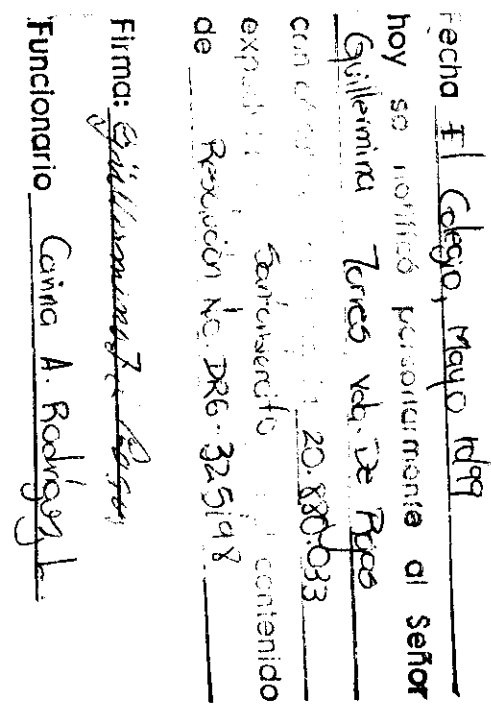 Fecha El Colegio, Mayo 10/99
hoy se notificó personalmente al Señor
Guillermina Torres vda. De Rojas
con 20.880.033
San Antonio contenido
de Resolución No. DRG-325/98
Firma: Guillermina
Funcionario Carina A. Rodríguez L.